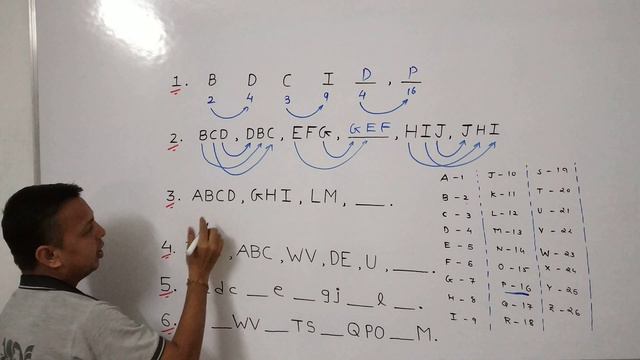 1. B D C I D , P
2 4 3 9 4 16
2. BCD, DBC, EFG, GEF, HIJ, JHI
3. ABCD, GHI, LM, ___.
4. , ABC, WV, DE, U, ___.
5. dc _ e _ gj _ l _.
6. _ WV _ TS _ QPO _ M.
A-1
B-2
C-3
D-4
E-5
F-6
G-7
H-8
I-9
J-10
K-11
L-12
M-13
N-14
O-15
P-16
Q-17
R-18
S-19
T-20
U-21
V-22
W-23
X-24
Y-25
Z-26